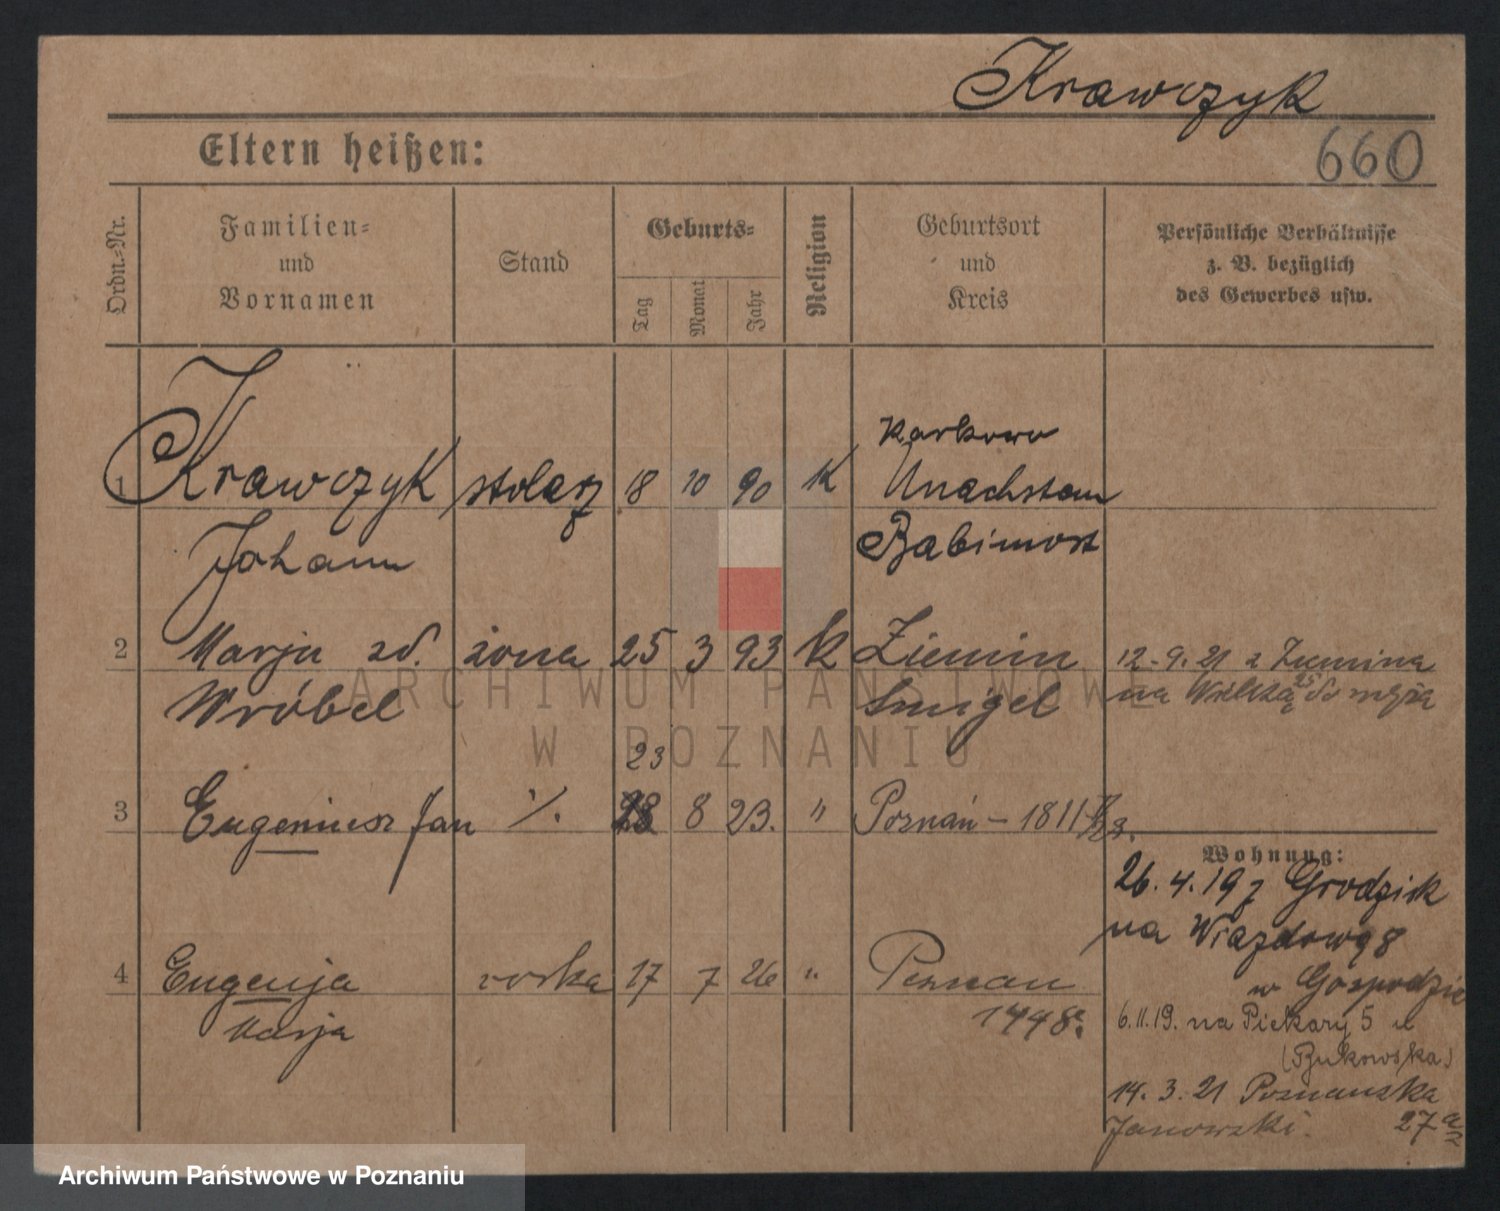 Krawczyk
660
Eltern heißen:
Ordn.-Nr.
Familien-
und
Vornamen
Stand
Geburts-
Tag
Monat
Jahr
Religion
Geburtsort
und
Kreis
Persönliche Verhältnisse
z. B. bezüglich
des Gewerbes usw.
Karkowo
1 Krawczyk stolarz 18 10 90 K Unachstam
Johann Babimost
2 Marja zd. żona 25 3 93 k Ziemin 12-9.21 z Ziemina
Wróbel Smigel na Wielką 25 do męża
23
3 Eugeniusz Jan ·/. 28 8 23. " Poznań - 1811
Wohnung:
26.4.19 z Grodzisk
na Wjazdową 8
w Gospodzie
4 Eugenja corka 17 7 26 " Poznan
Marja 1448
6.11.19. na Piekary 5 u
(Bukowska)
14.3.21 Poznanska
Janowski. 27a
ARCHIWUM PAŃSTWOWE
W POZNANIU
Archiwum Państwowe w Poznaniu